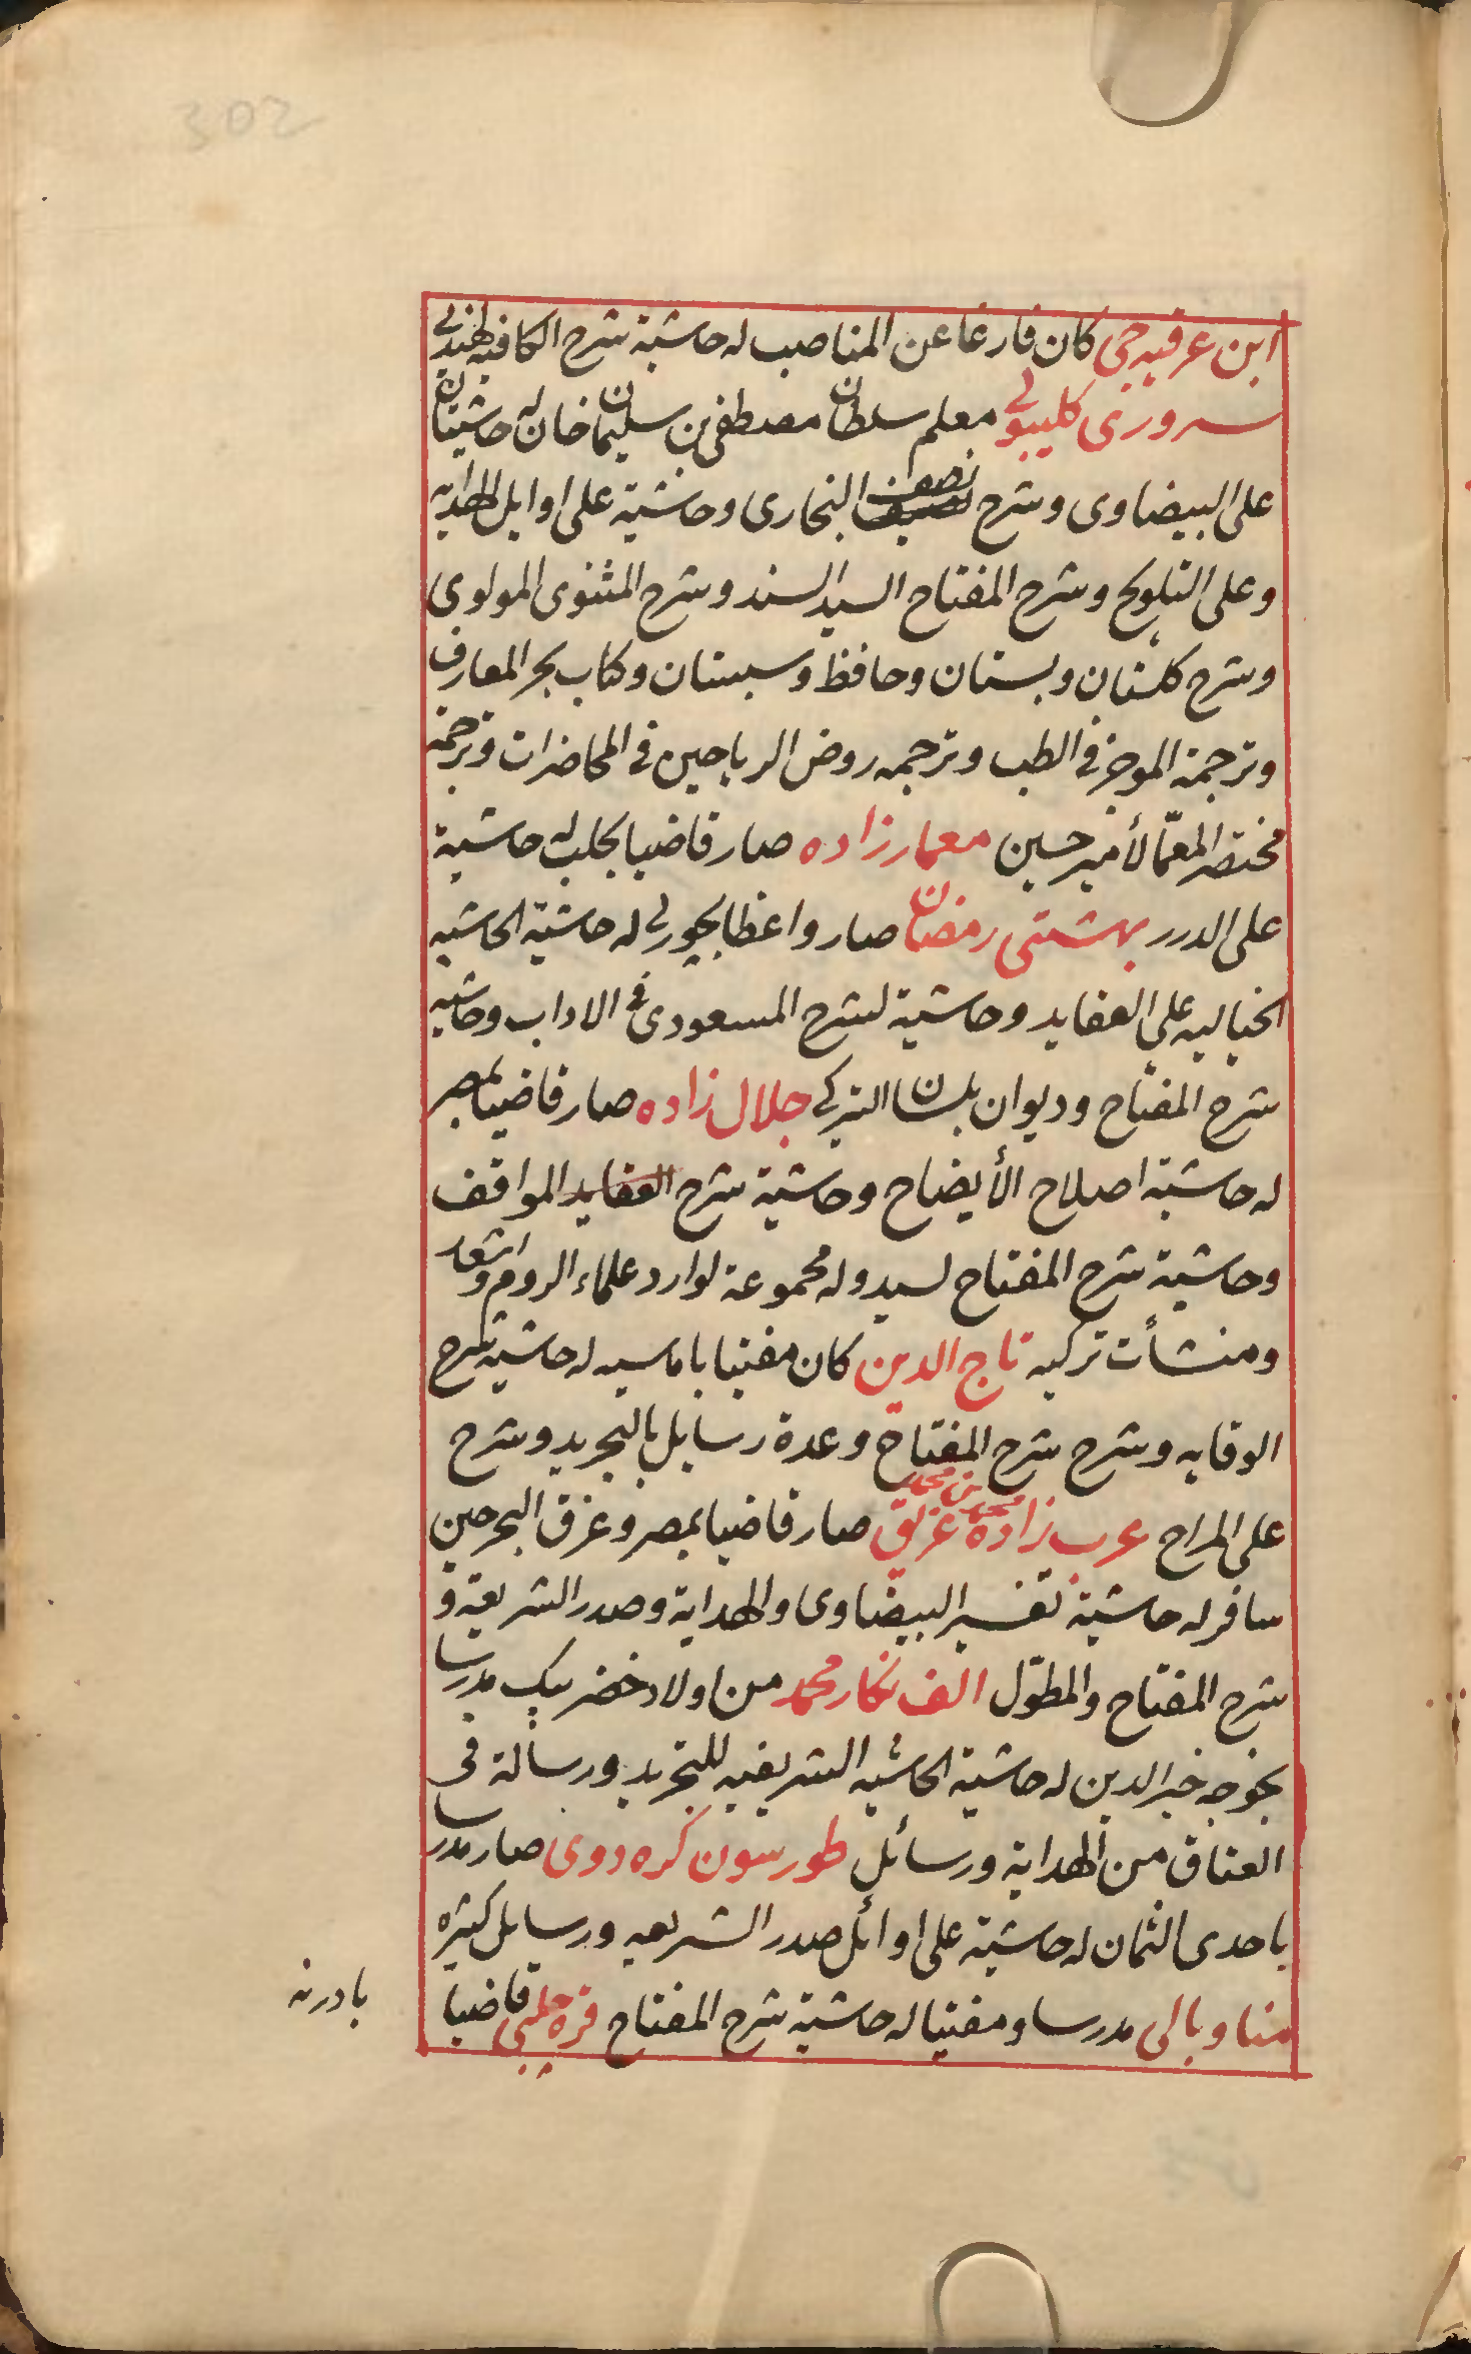 302
ابن عرقيه جى كان فارغا عن المناصب له حاشية شرح الكافيه لهندى
سرورى كليبولى معلم سلطان مصطفى بن سليمان خان له حاشيتان
على البيضاوى وشرح نصف البخارى وحاشية على اوايل الهدايه
وعلى التلويح وشرح المفتاح السيد السند وشرح المثنوى المولوى
وشرح كلستان وبستان وحافظ وسبستان وكتاب بحر المعارف
وترجمة الموجز فى الطب وترجمه روض الرياحين فى المحاضرات وترجمة
مختصر المعمّا لأمير حسين معمار زاده صار قاضيا بحلب له حاشية
على الدرر بهشتى رمضان صار واعظا بچورلى له حاشية الحاشيه
الخياليه على العقايد وحاشية لشرح المسعودى فى الاداب وحاشيه
شرح المفتاح وديوان بلسان التركى جلال زاده صار قاضيا بمصر
له حاشية اصلاح الأيضاح وحاشية شرح العقايد المواقف
وحاشية شرح المفتاح لسيد وله مجموعة لوارد علماء الروم واشعار
ومنشأت تركيه تاج الدين كان مفتيا باماسيه له حاشية شرح
الوقايه وشرح شرح المفتاح وعدة رسايل بالتجريد وشرح
على المراح عرب زاده محمد بن محمد غريق صار قاضيا بمصر وغرق البحر حين
سافر له حاشية تفسير البيضاوى والهداية وصدر الشريعة و
شرح المفتاح والمطوّل الف نكار محمد من اولاد خضر بيك مدرسا
بخوجه خير الدين له حاشية الحاشيه الشريفيه للتجريد ورسالة فى
العتاق من الهداية ورسائل طورسون كره دوى صار مدرسا
باحدى الثمان له حاشية على اوائل صدر الشريعه ورسايل كثيره
مناو بالى مدرسا ومفتيا له حاشية شرح المفتاح قره چلبى قاضيا
بادرنه